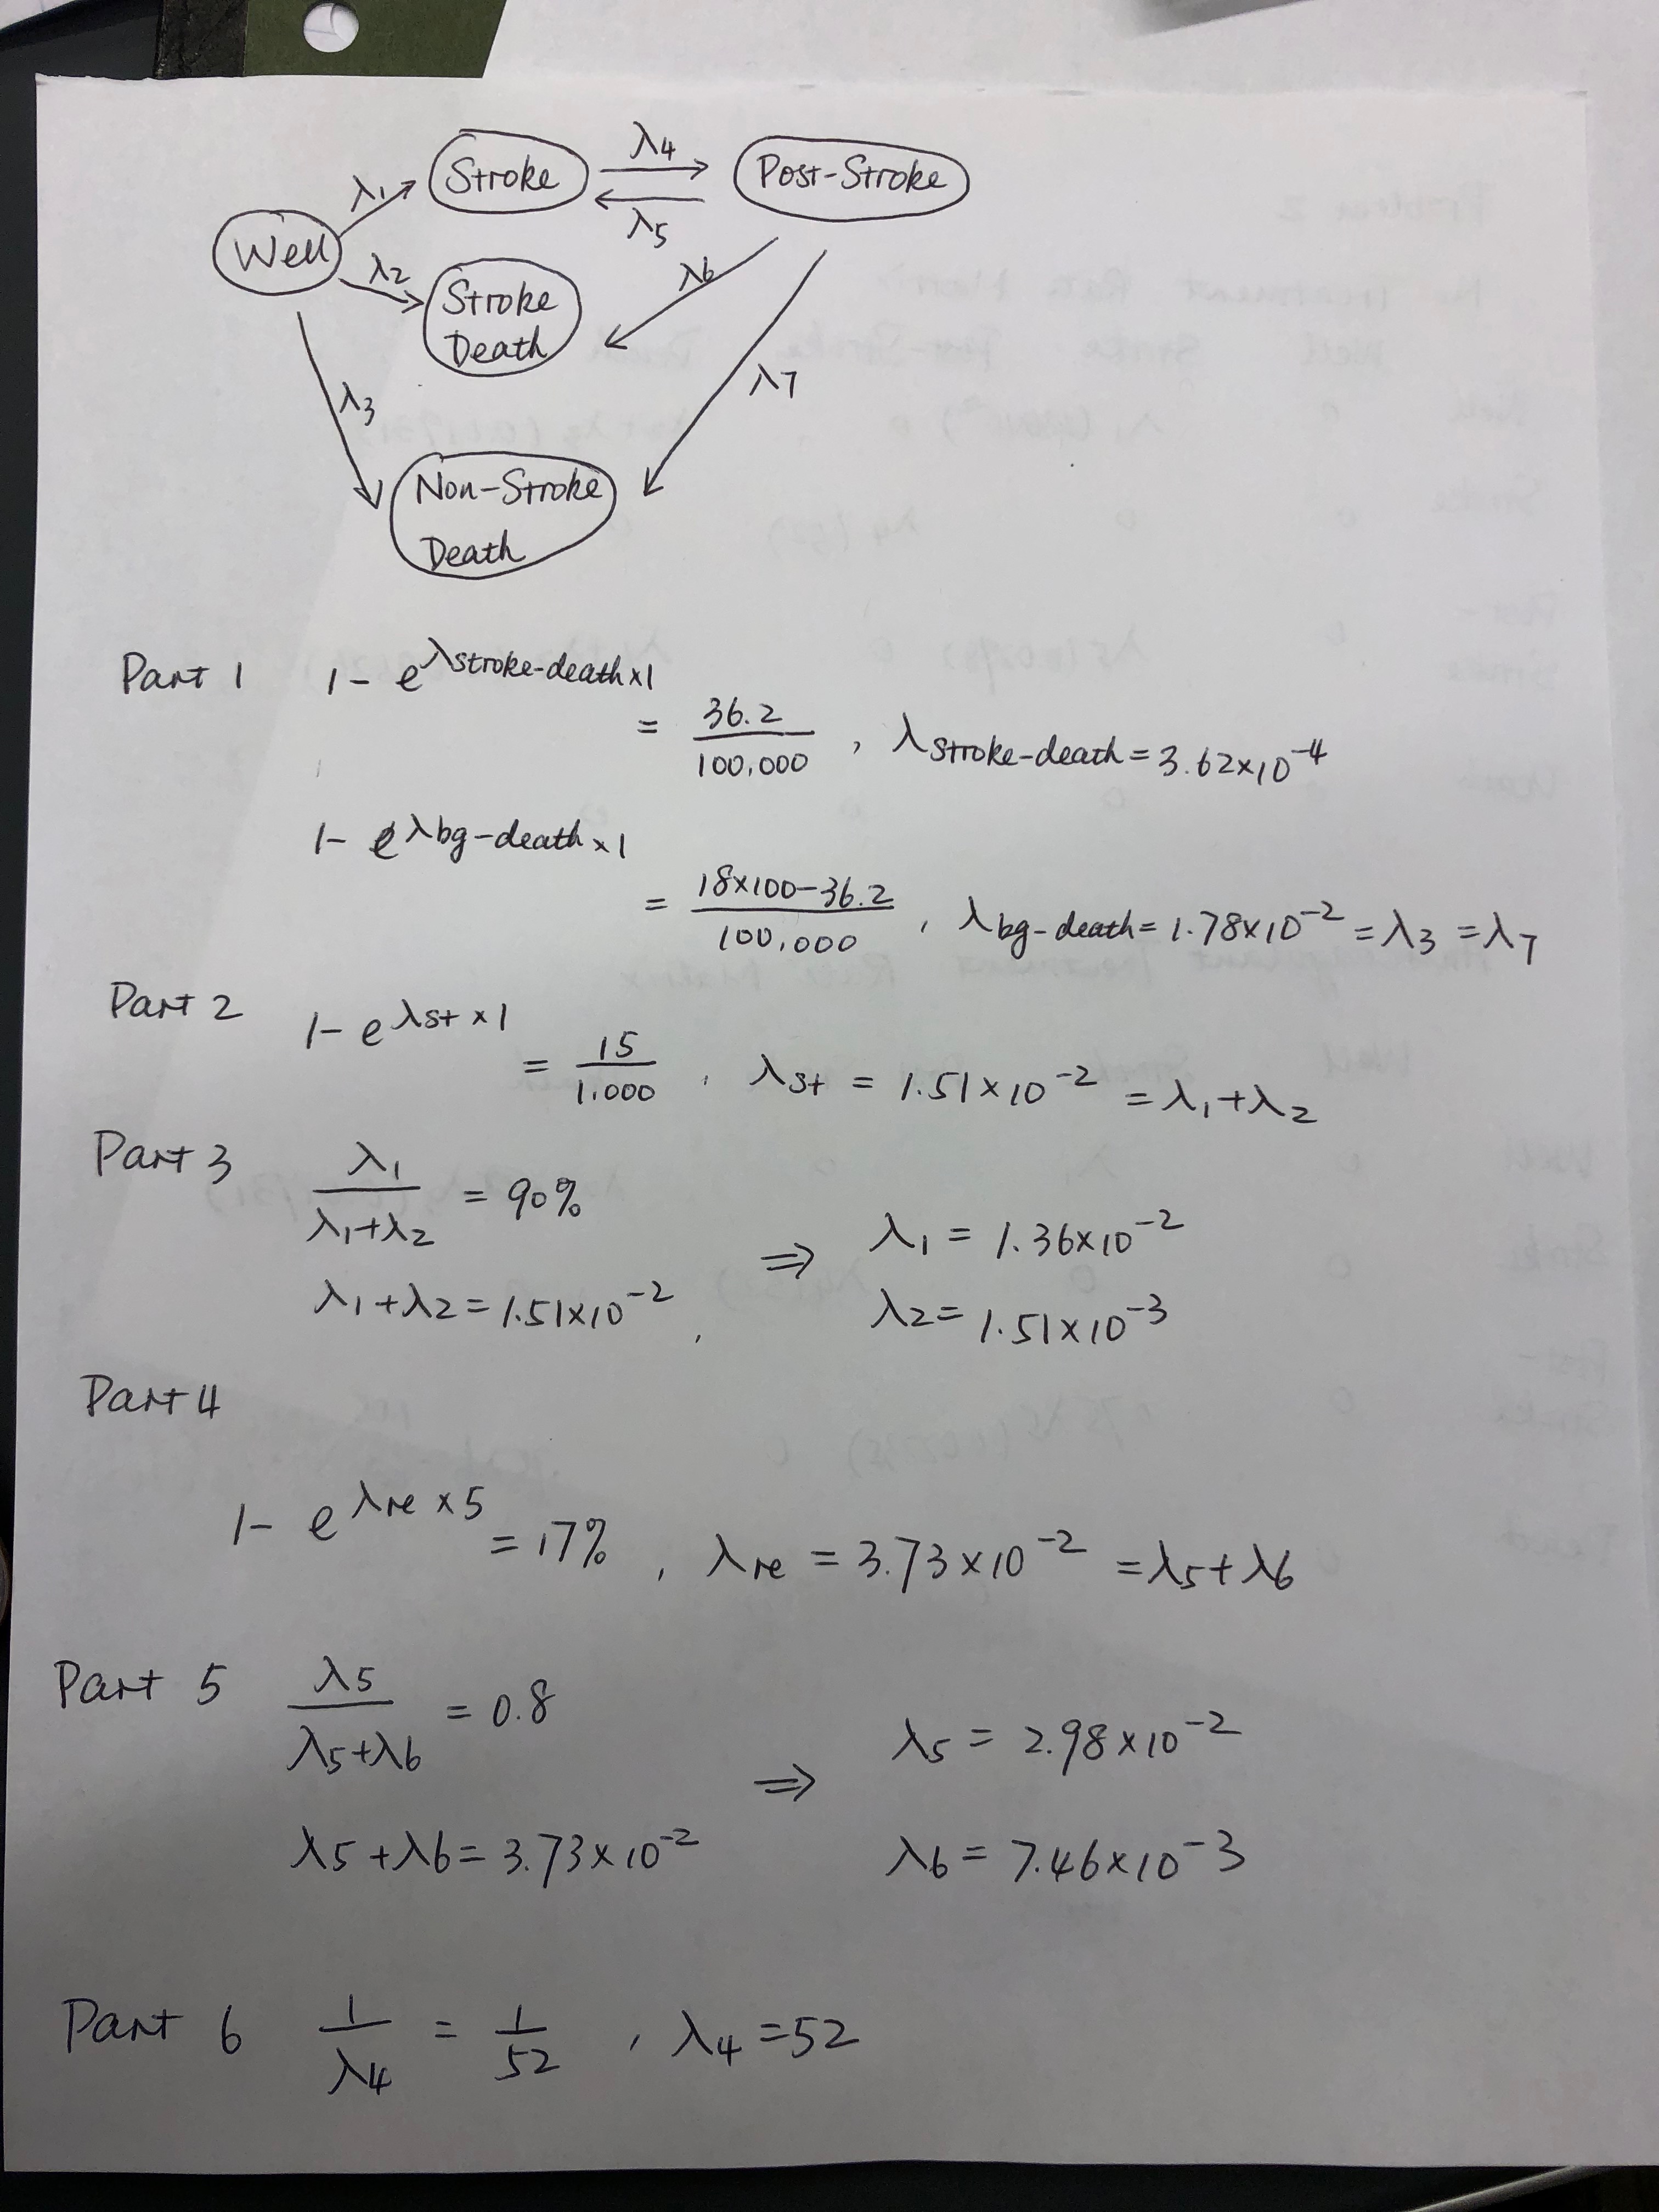 λ1 Stroke λ4 Post-Stroke
λ5
Well
λ2 Stroke
Death
λ6
λ3
λ7
Non-Stroke
Death
Part 1 1 - e^λstroke-death×1
= 36.2/100,000 , λstroke-death = 3.62×10^-4
1 - e^λbg-death×1
= 18×100-36.2/100,000 , λbg-death = 1.78×10^-2 = λ3 = λ7
Part 2 1 - e^λst×1
= 15/1,000 , λst = 1.51×10^-2 = λ1+λ2
Part 3 λ1/λ1+λ2 = 90%
⇒ λ1 = 1.36×10^-2
λ1+λ2 = 1.51×10^-2 , λ2 = 1.51×10^-3
Part 4
1 - e^λre×5 = 17% , λre = 3.73×10^-2 = λ5+λ6
Part 5 λ5/λ5+λ6 = 0.8
⇒ λ5 = 2.98×10^-2
λ5+λ6 = 3.73×10^-2 λ6 = 7.46×10^-3
Part 6 1/λ4 = 1/52 , λ4 = 52